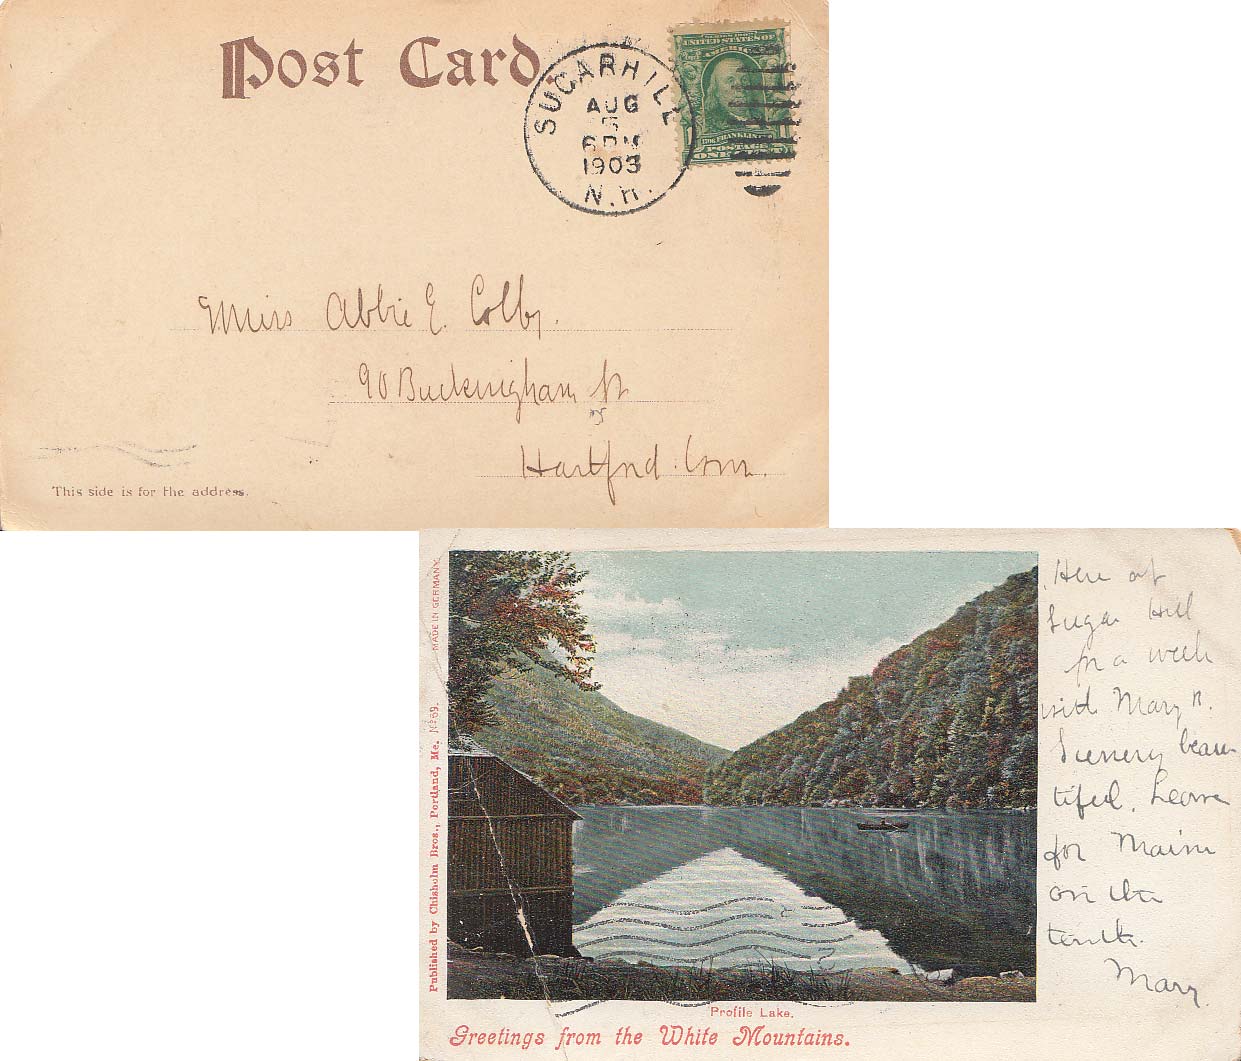 Post Card.
SUGAR HILL
AUG
5
6 PM
1903
N.H.
SERIES 1902
UNITED STATES OF
AMERICA
FRANKLIN
POSTAGE
ONE CENT
Miss Abbie E. Colby.
90 Buckingham St
Hartford. Conn.
This side is for the address.
MADE IN GERMANY.
Published by Chisholm Bros., Portland, Me. No 69.
Here at
Sugar Hill
for a week
with Mary R.
Scenery beau-
tiful. Leave
for Maine
on the
tenth.
Mary.
Profile Lake.
Greetings from the White Mountains.